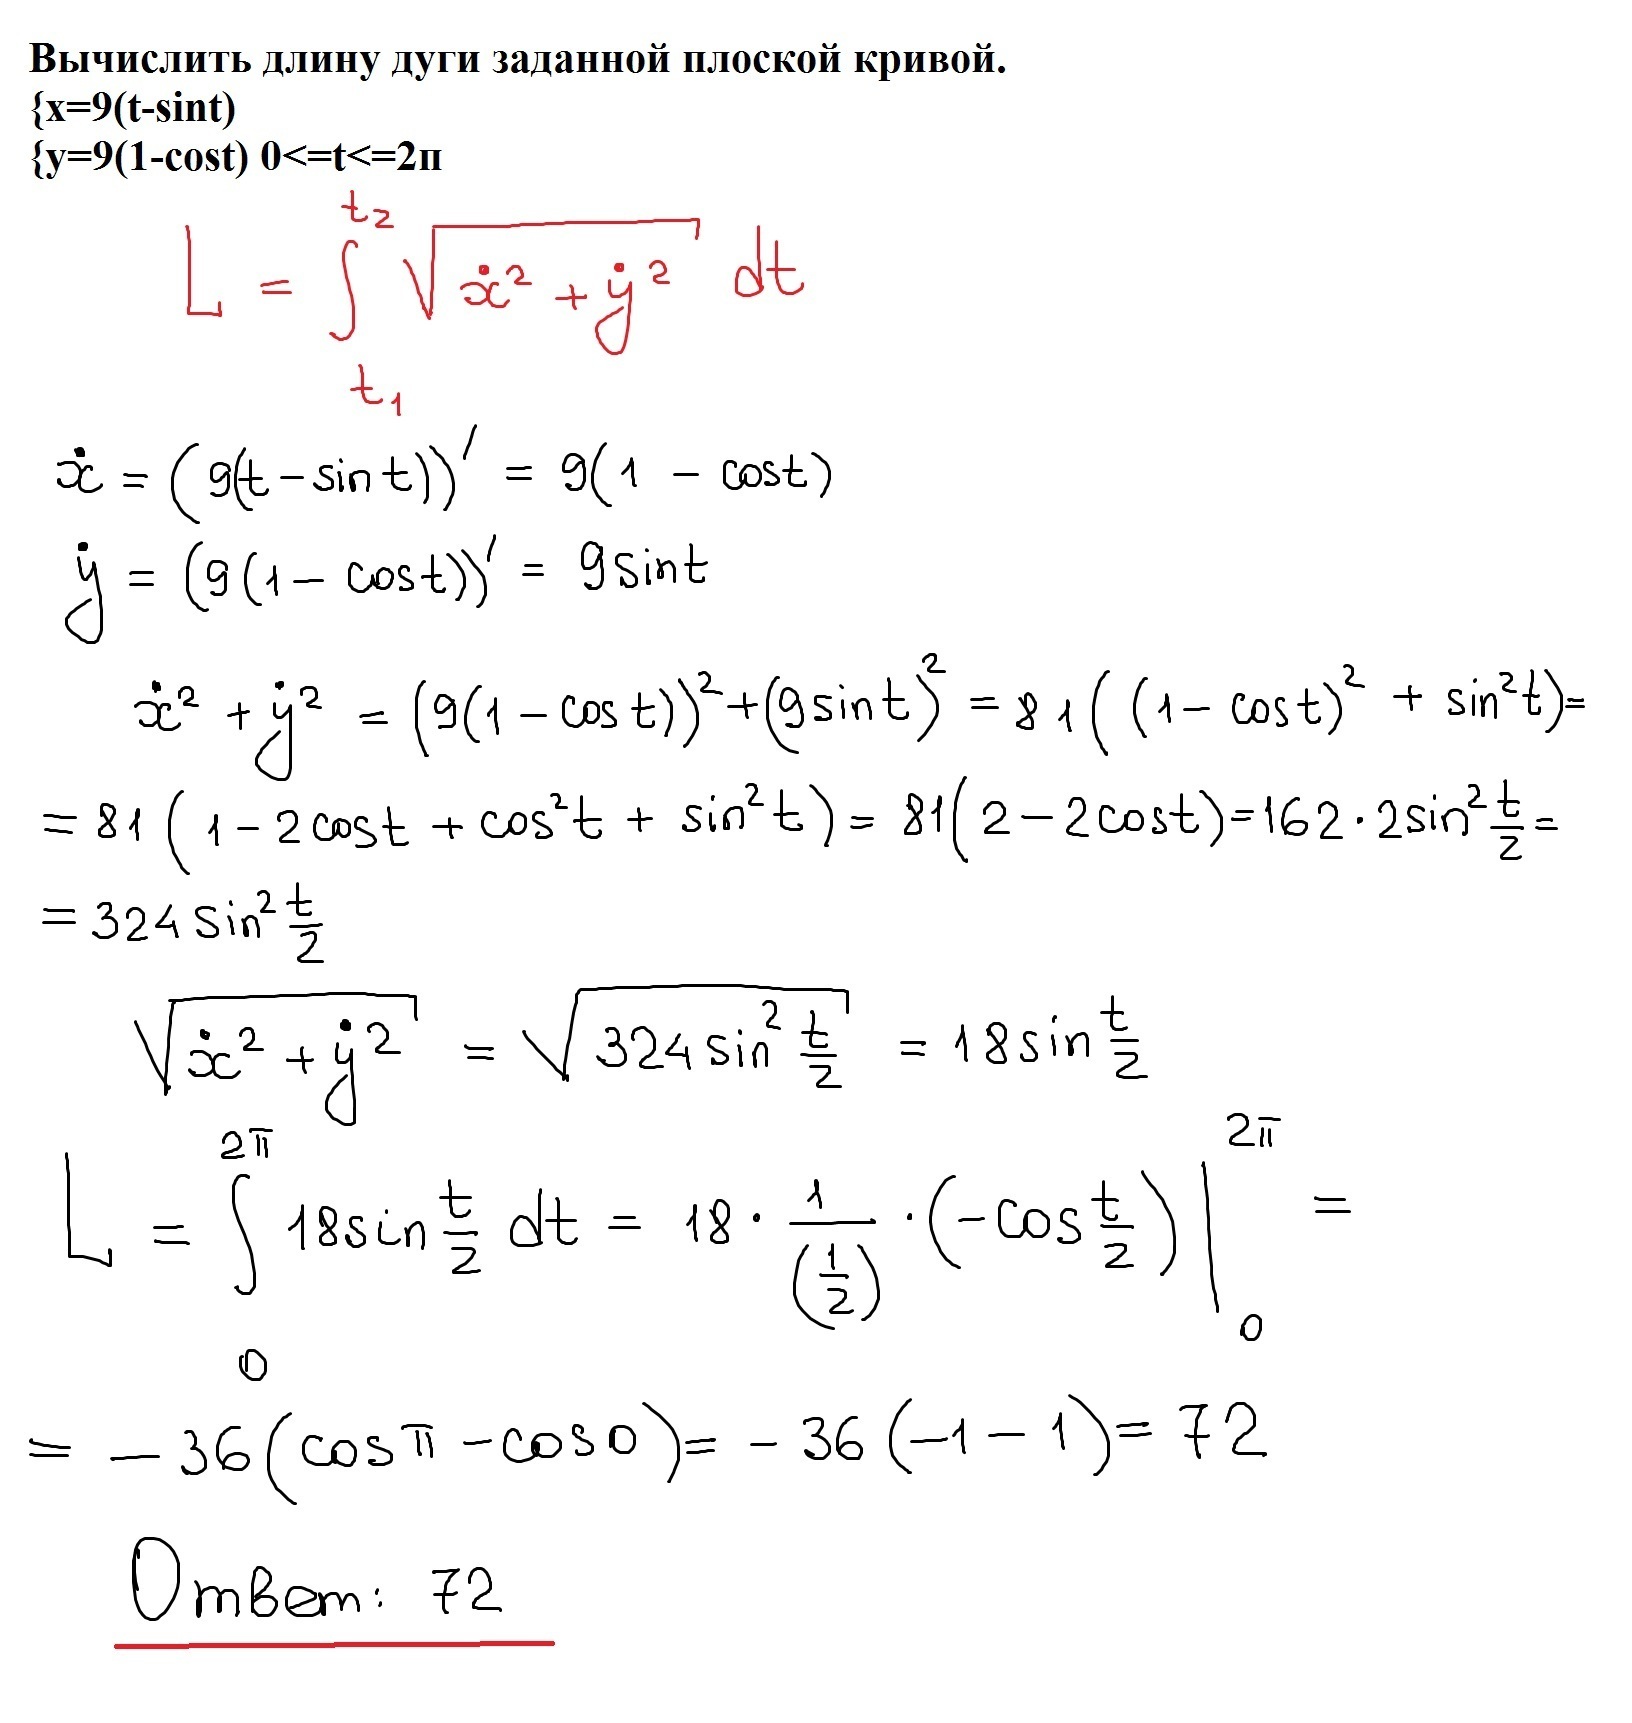 Вычислить длину дуги заданной плоской кривой.
{x=9(t-sint)
{y=9(1-cost) 0<=t<=2п
L = ∫_{t₁}^{t₂} √(ẋ² + ẏ²) dt
ẋ = (9(t - sin t))′ = 9(1 - cost)
ẏ = (9(1 - cost))′ = 9sint
ẋ² + ẏ² = (9(1 - cos t))² + (9sint)² = 81((1 - cost)² + sin²t) =
= 81(1 - 2cost + cos²t + sin²t) = 81(2 - 2cost) = 162 · 2sin² t/2 =
= 324 sin² t/2
√(ẋ² + ẏ²) = √(324 sin² t/2) = 18sin t/2
L = ∫_{0}^{2π} 18sin t/2 dt = 18 · 1/(1/2) · (-cos t/2) |_{0}^{2π} =
= -36(cosπ - cos0) = -36(-1 - 1) = 72
Ответ: 72